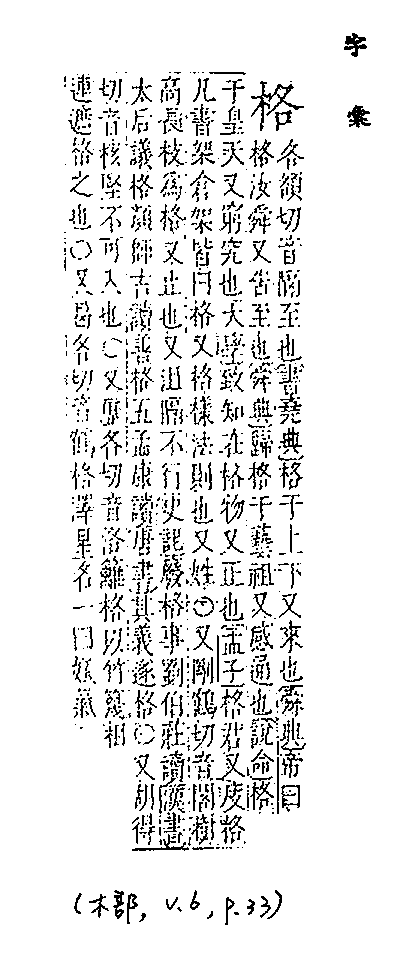 字彙
格
各額切音隔至也書堯典格于上下又來也舜典帝曰
格汝舜又告至也舜典歸格于藝祖又感通也說命格
于皇天又窮究也大學致知在格物又正也孟子格君又庋格
凡書架倉架皆曰格又格樣法則也又姓○又剛鶴切音閣樹
高長枝為格又止也又沮隔不行史記廢格事劉伯莊讀漢書
太后議格顏師古讀書格五孟康讀唐書其義遂格○又胡得
切音核堅不可入也○又歷各切音洛籬格以竹篾相
連遮格之也○又曷各切音鶴格澤星名一曰妖氣
(木部, v.6, p.33)